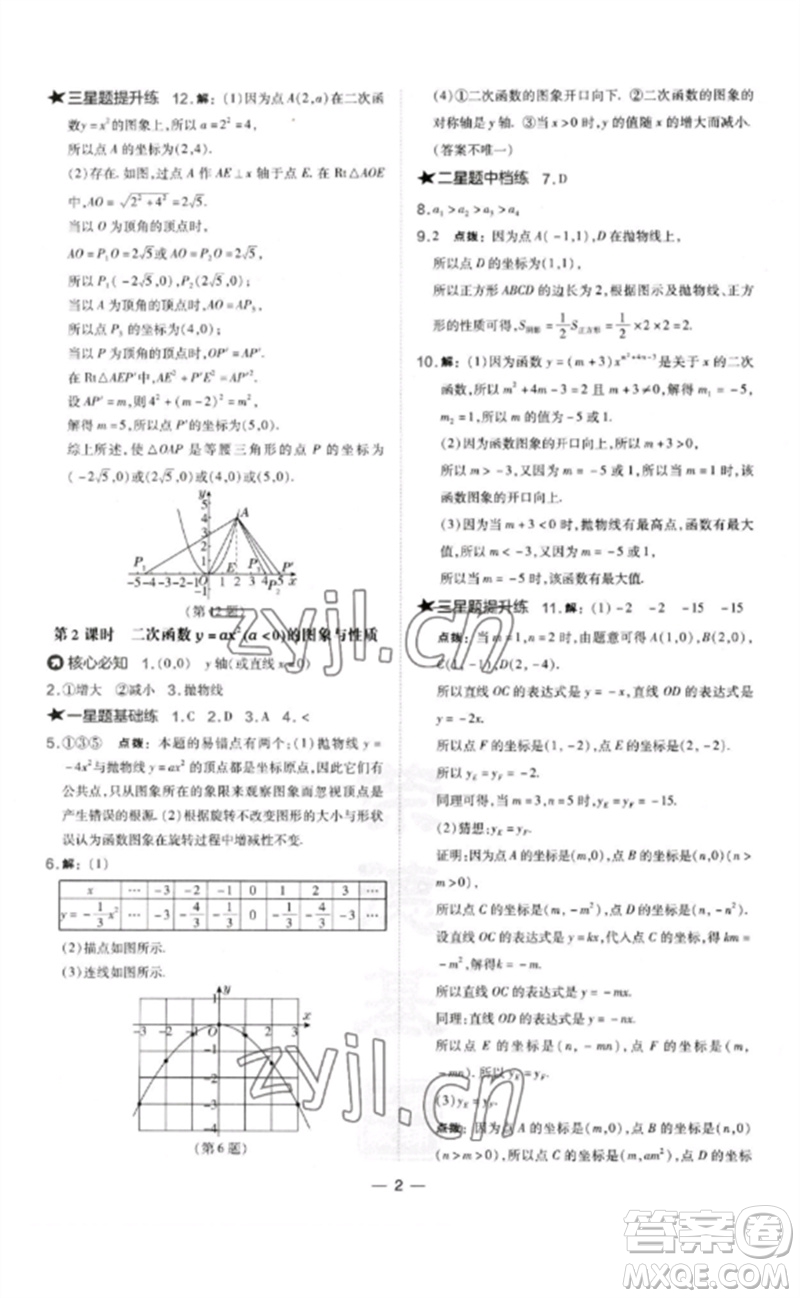 ★三星题提升练 12.解：(1)因为点A(2,a)在二次函
数y=x²的图象上,所以a=2²=4,
所以点A的坐标为(2,4).
(2)存在.如图,过点A作AE⊥x轴于点E.在Rt△AOE
中,AO=√(2²+4²)=2√5.
当以O为顶角的顶点时,
AO=P₁O=2√5或AO=P₂O=2√5,
所以P₁(-2√5,0),P₂(2√5,0);
当以A为顶角的顶点时,AO=AP₃,
所以点P₃的坐标为(4,0);
当以P为顶角的顶点时,OP′=AP′.
在Rt△AEP′中,AE²+P′E²=AP′².
设AP′=m,则4²+(m-2)²=m².
解得m=5,所以P′的坐标为(5,0).
综上所述,使△OAP是等腰三角形的点P的坐标为
(-2√5,0)或(2√5,0)或(4,0)或(5,0).
y
5
4
3
2
1
A
P₁ O E P₃ P₂ P′
-5-4-3-2-1 0 1 2 3 4 5 x
(第12题)
第2课时 二次函数y=ax²(a<0)的图象与性质
核心必知 1.(0,0) y轴(或直线x=0)
2.①增大 ②减小 3.抛物线
★一星题基础练 1.C 2.D 3.A 4.<
5.①③⑤ 点拨：本题的易错点有两个:(1)抛物线y=
-4x²与抛物线y=ax²的顶点都是坐标原点,因而它们有
公共点,只从图象所在的象限来观察图象而忽视顶点是
产生错误的根源.(2)根据旋转不改变图形的大小与形状
误认为函数图象在旋转过程中增减性不变.
6.解：(1)
x … -3 -2 -1 0 1 2 3 …
y=-1/3x² … -3 -4/3 -1/3 0 -1/3 -4/3 -3 …
(2)描点如图所示.
(3)连线如图所示.
y
1
-3 -2 -1 O 1 2 3 x
-1
-2
-3
-4
(第6题)
(4)①二次函数的图象开口向下.②二次函数的图象的
对称轴是y轴.③当x>0时,y的值随x的增大而减小.
(答案不唯一)
★二星题中档练 7.D
8.a₁>a₂>a₃>a₄
9.2 点拨：因为点A(-1,1),D在抛物线上,
所以点D的坐标为(1,1),
所以正方形ABCD的边长为2,根据图示及抛物线、正方
形的性质可得,S阴影=1/2S正方形=1/2×2×2=2.
10.解：(1)因为函数y=(m+3)x^(m²+4m-3)是关于x的二次
函数,所以m²+4m-3=2且m+3≠0,解得m₁=-5,
m₂=1,所以m的值为-5或1.
(2)因为函数图象的开口向上,所以m+3>0,
所以m>-3,所以m=1,所以当m=1时,该
函数图象的开口向上.
(3)因为当m+3<0时,抛物线有最高点,函数有最大
值,所以m<-3,因为m=-5或1,所以m=-5,
所以当m=-5时,该函数有最大值.
★三星题提升练 11.解：(1)-2 -2 -15 -15
点拨：当m=1,n=2时,由题意可得A(1,0),B(2,0),
C(1,-1),D(2,-4).
所以直线OC的表达式为y=-x,直线OD的表达式为
y=-2x.
所以点F的坐标为(1,-2),点E的坐标为(2,-2).
所以yE=yF=-2.
同理可得,当m=3,n=5时,yE=yF=-15.
(2)猜想:yE=yF.
证明:因为点A的坐标是(m,0),点B的坐标是(n,0)(n>
m>0),
所以点C的坐标为(m,-m²),点D的坐标为(n,-n²).
设直线OC的表达式是y=kx,代入点C的坐标,得km=
-m²,解得k=-m.
所以直线OC的表达式为y=-mx.
同理:直线OD的表达式为y=-nx.
所以点E的坐标是(n,-mn),点F的坐标是(m,
-mn).所以yE=yF.
(3)yE=yF.
点拨：因为点A的坐标是(m,0),点B的坐标是(n,0)
(n>m>0),所以点C的坐标是(m,am²),点D的坐标
— 2 —
zyjl.cn
zyjl.cn
答案圈
MXQE.COM